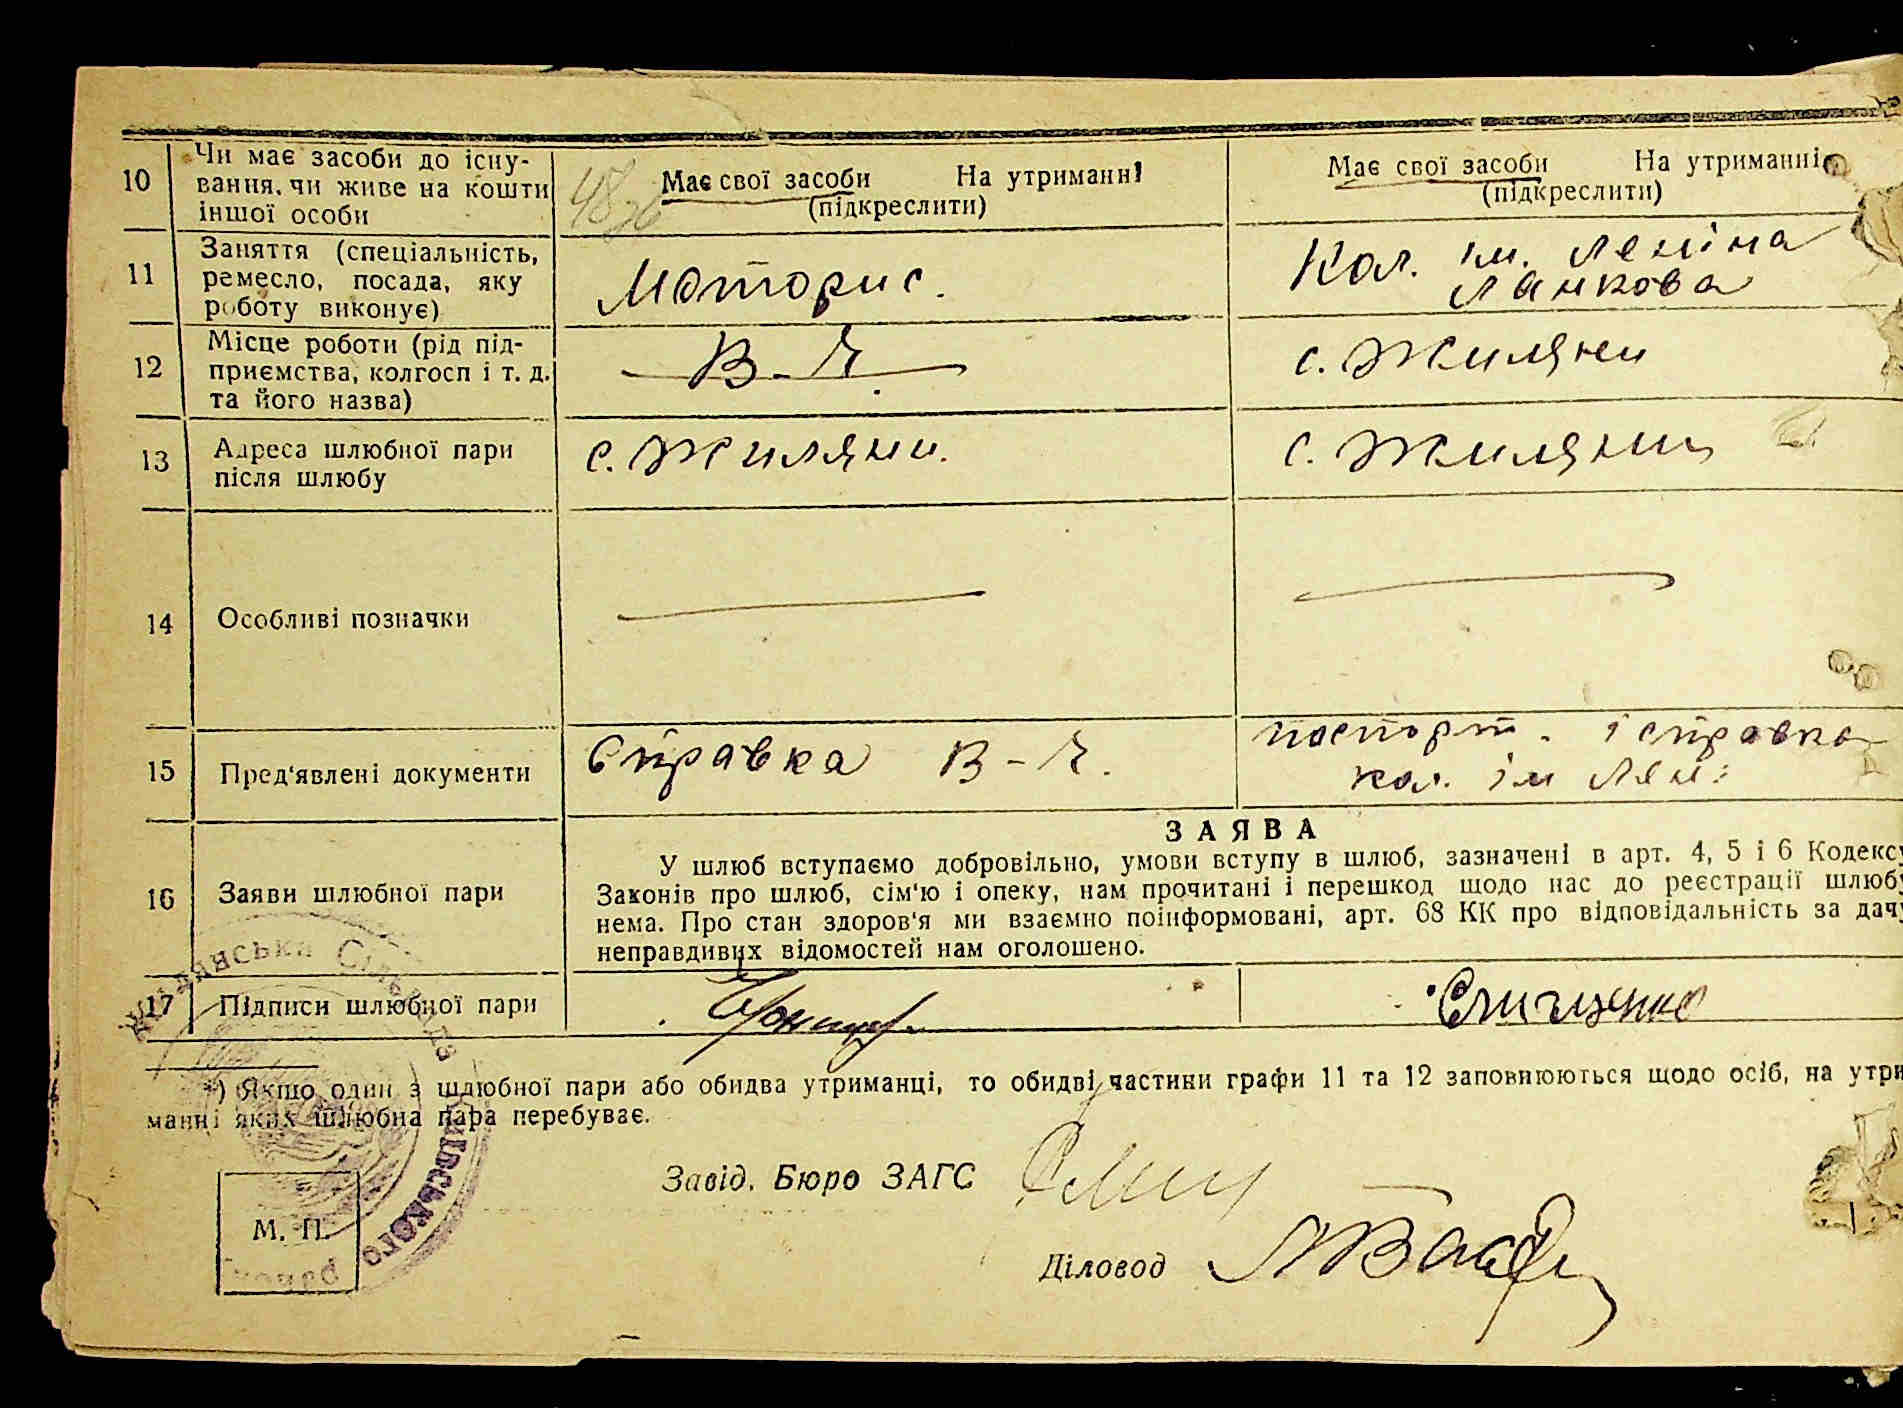 10 Чи має засоби до існу-
вання, чи живе на кошти
іншої особи
Має свої засоби На утриманні
(підкреслити)
Має свої засоби На утриманні
(підкреслити)
11 Заняття (спеціальність,
ремесло, посада, яку
роботу виконує)
Моторис.
Кол. ім. Леніна
Ланкова
12 Місце роботи (рід під-
приємства, колгосп і т. д.
та його назва)
В-Ч.
с. Жиляни
13 Адреса шлюбної пари
після шлюбу
с. Жиляни.
с. Жиляни
14 Особливі позначки
15 Пред'явлені документи
Справка В-Ч.
паспорт. і справка
кол. ім Лен:
16 Заяви шлюбної пари
ЗАЯВА
У шлюб вступаємо добровільно, умови вступу в шлюб, зазначені в арт. 4, 5 і 6 Кодексу
Законів про шлюб, сім'ю і опеку, нам прочитані і перешкод щодо нас до реєстрації шлюбу
нема. Про стан здоров'я ми взаємно поінформовані, арт. 68 КК про відповідальність за дачу
неправдивих відомостей нам оголошено.
17 Підписи шлюбної пари
*) Якщо один з шлюбної пари або обидва утриманці, то обидві частини графи 11 та 12 заповнюються щодо осіб, на утри
манні яких шлюбна пара перебуває.
Завід. Бюро ЗАГС
М. П.
Діловод
Сільрада
Київського
району